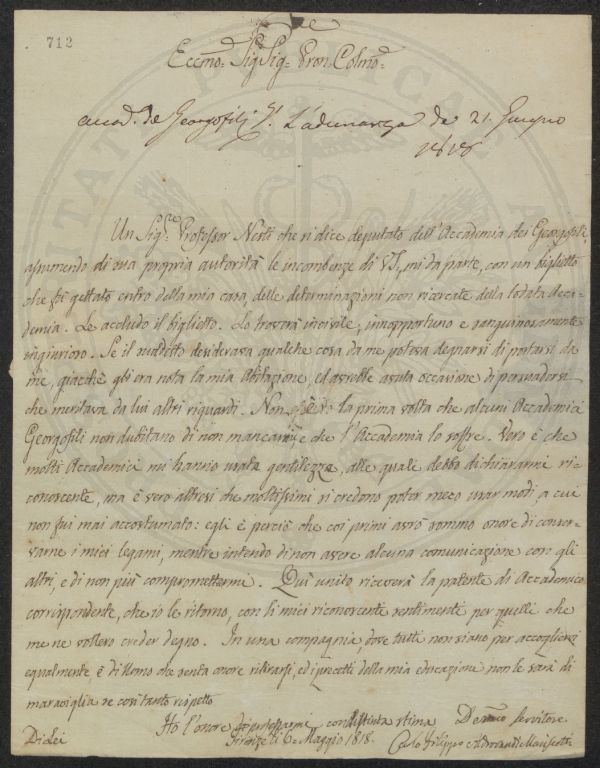 712
Eccmo. Sig: Sig: Pron. Colmo.
accad. de Georgofilj L'adunanza de 21. Giugno
1818
Un Sigre. Professor Nesti che si dice deputato dell'Accademia dei Georgofili,
assumendo di sua propria autorità le incombenze di VS, mi da parte, con un biglietto
che fù gettato entro della mia casa, delle determinazioni non ricercate della lodata Acca-
demia. Le accludo il biglietto. Lo troverà incivile, innopportuno e sanguinosamente
ingiurioso. Se il suddetto desiderava qualche cosa da me poteva degnarsi di portarsi da
me, giacchè gli era nota la mia Abitazione, ed avrebbe avuta occasione di persuadersi
che meritava da lui altri riguardi. Non è la prima volta che alcuni Accademici
Georgofili non dubitano di non mancarmi e che l'Accademia lo soffre. Vero è che
molti Accademici mi hanno usata gentilezza, alle quali debbo dichiararmi ric-
conoscente, ma è vero altresì che moltissimi si credono poter meco usar modi a cui
non fui mai accostumato: egli è perciò che coi primi avrò sommo onore di conser-
varne i miei legami, mentre intendo di non avere alcuna comunicazione con gli
altri, e di non più compromettermi. Quì unito riceverà la patente di Accademico
corrispondente, che io le ritorno, con li miei riconoscenti sentimenti per quelli che
me ne vollero creder degno. In una compagnia, dove tutti non siano per accogliersi
egualmente, è di Uomo che senta onore ritirarsi, ed i precetti della mia educazione non le sarà di
maraviglia se così tanto rispetto
Ho l'onore di protestarmi con distinta stima Devmo. Servitore
Di Lei Firenze li 6. Maggio 1818. Carlo Filippo Aldrovandi Mariscotti